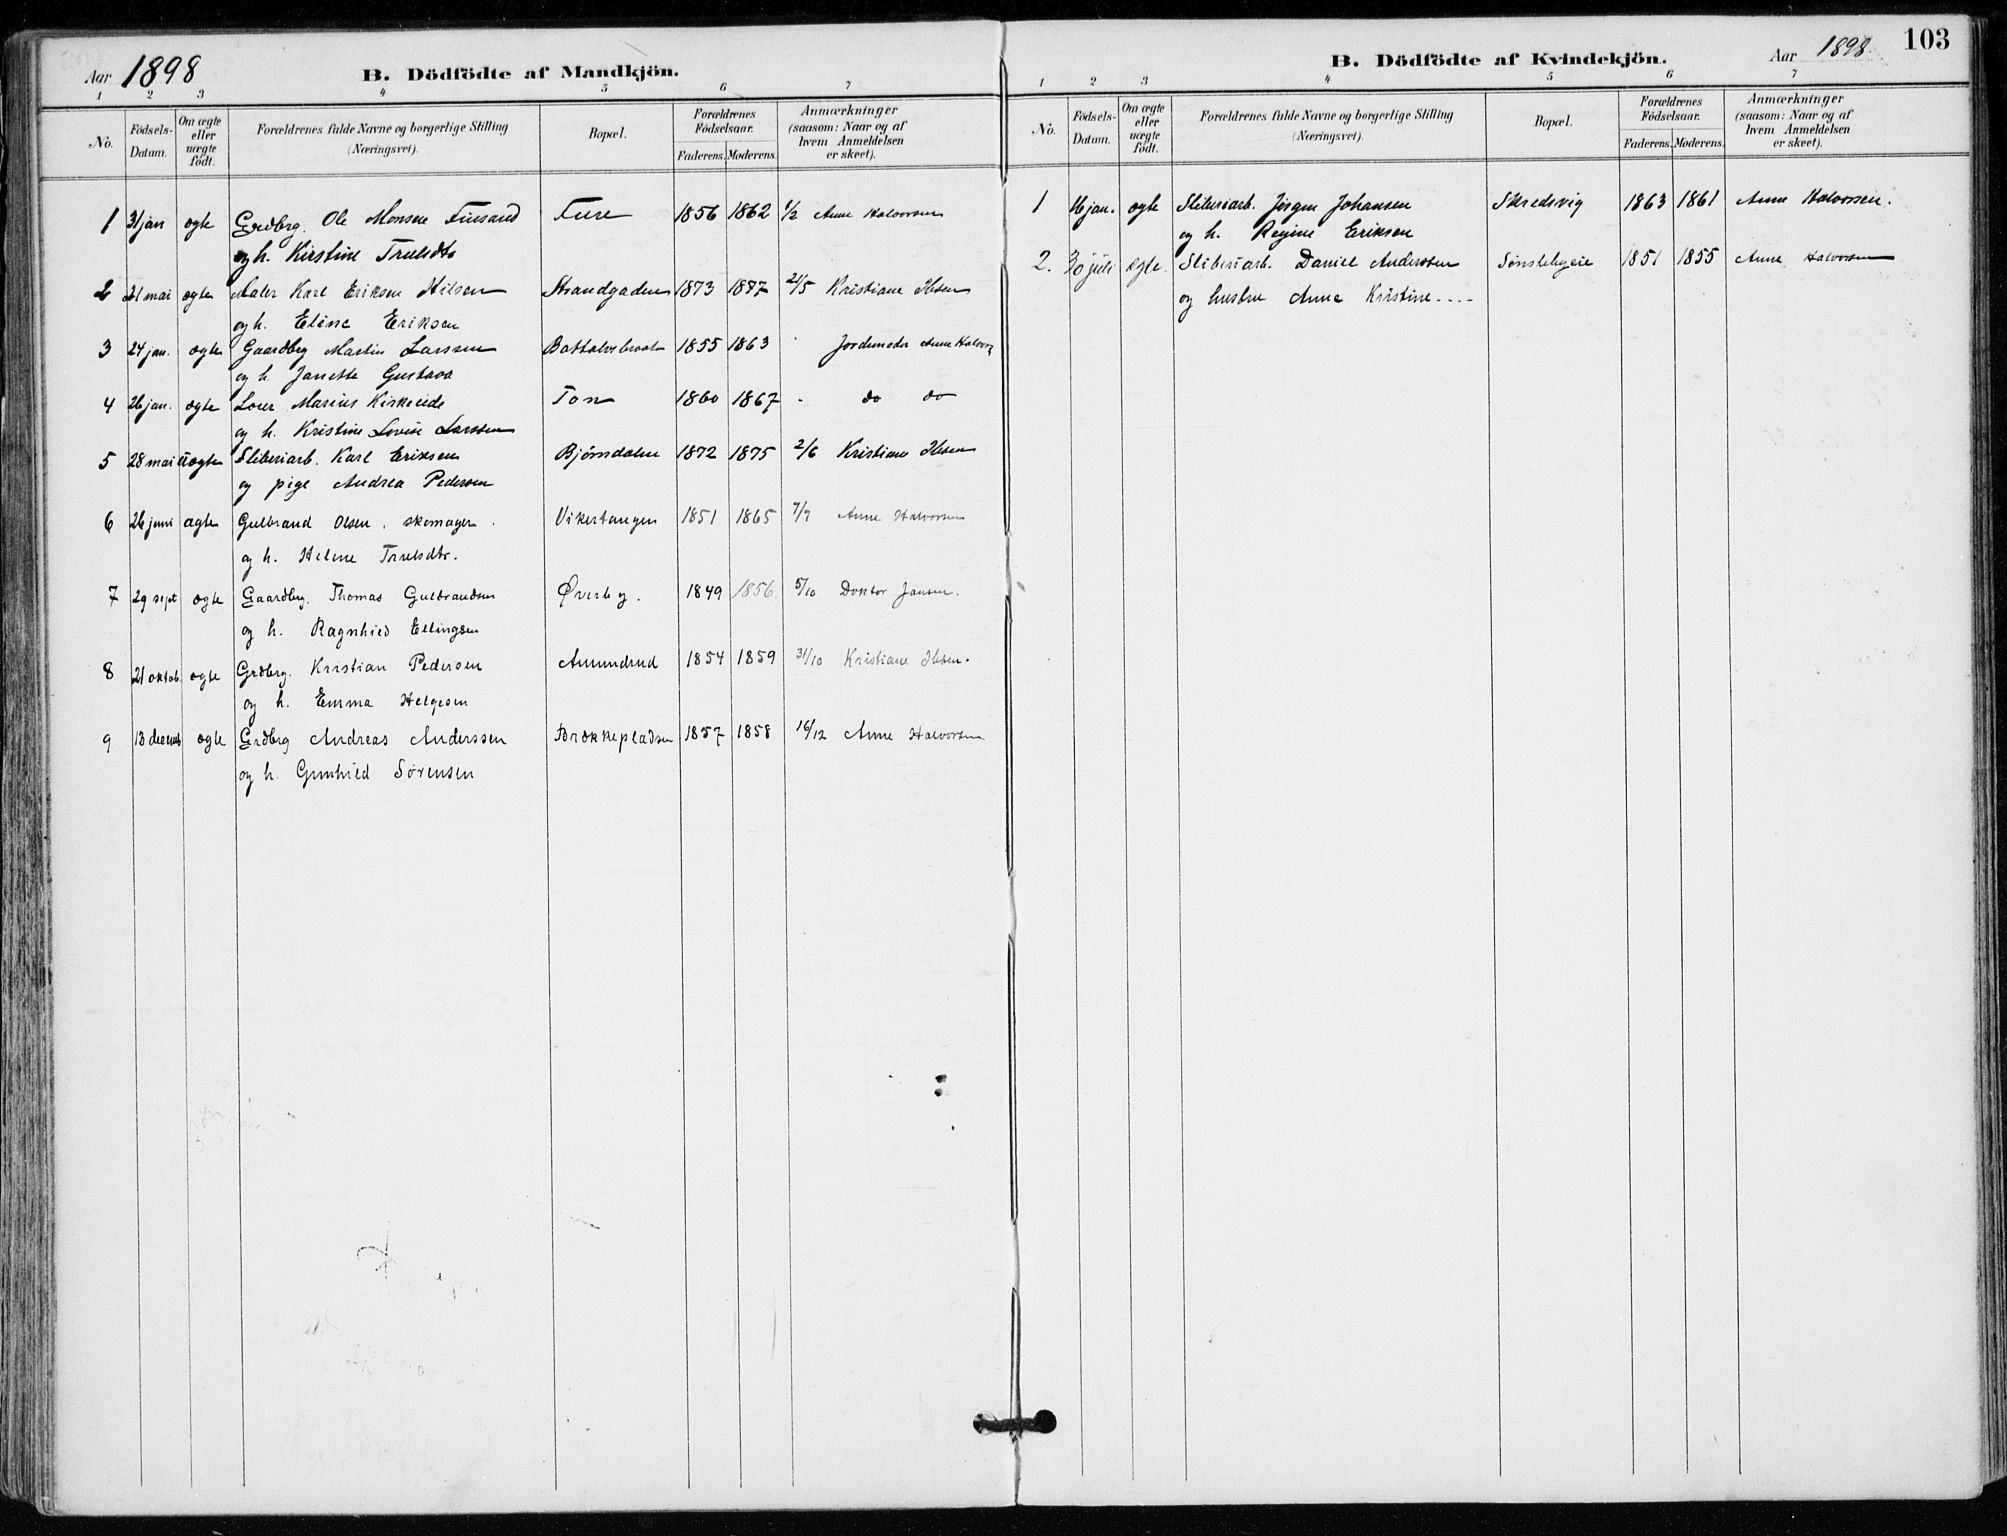 Aar 1898 B. Dödfödte af Mandkjön.
1 2 3 4 5 6 7
No. Födsels-Datum. Om ægte eller uægte födt. Forældrenes fulde Navne og borgerlige Stilling (Næringsvei). Bopæl. Forældrenes Födselsaar. Faderens. Moderens. Anmærkninger (saasom: Naar og af hvem Anmeldelsen er skeet).
1 31 jan ægte Grdbrg. Ole Monsen Finsand Ture 1856 1862 1/2 Anne Halvorsen
og h. Kirstine Trulsdtr
2 21 mai ægte Maler Karl Eriksen Nilsen Strandgaden 1873 1877 21/5 Kristiane Ibsen
og h. Eline Eriksen
3 24 jan. ægte Gaardbrg Martin Larssen 1855 1863 Jordemoder Anne Halvors
og h. Janette Gustava
4 26 jan. ægte Loser Marius Kiskerude Ton 1860 1867 - do do
og h. Kristine Lovise Larssen
5 28 mai uægte Sliberiarb. Karl Eriksen Bjørndalen 1872 1875 2/6 Kristiane Ibsen
og pige Andrea Pedersen
6 26 juni ægte Gulbrand Olsen, skomager. Vikertangen 1851 1865 7/7 Anne Halvorsen
og h. Helene Trulsdtr.
7 29 sept ægte Gaardbrg. Thomas Gulbrandsen Øverby. 1849 1856. 5/10 Doktor Jansen.
og h. Ragnhild Ellingsen
8 21 oktob. ægte Grdbrg. Kristian Pedersen Amundrud 1854 1859 31/10 Kristiane Ibsen.
og h. Emma Helgesen
9 13 decemb ægte Grdbrg Andreas Anderssen Brækkepladsen 1857 1858 16/12 Anne Halvorsen
og h. Gunhild Sørensen
B. Dödfödte af Kvindekjön. Aar 1898. 103
1 2 3 4 5 6 7
No. Födsels-Datum. Om ægte eller uægte födt. Forældrenes fulde Navne og borgerlige Stilling (Næringsvei). Bopæl. Forældrenes Födselsaar. Faderens. Moderens. Anmærkninger (saasom: Naar og af hvem Anmeldelsen er skeet).
1 16 jan. ægte Sliberiarb. Jørgen Johansen Skredsvig 1863 1861 Anne Halvorsen.
og h. Regine Eriksen
2. 30 juli ægte. Sliberiarb. Daniel Anderssen Sønstebyeie 1851 1855 Anne Halvorsen
og hustru Anne Kristine ----